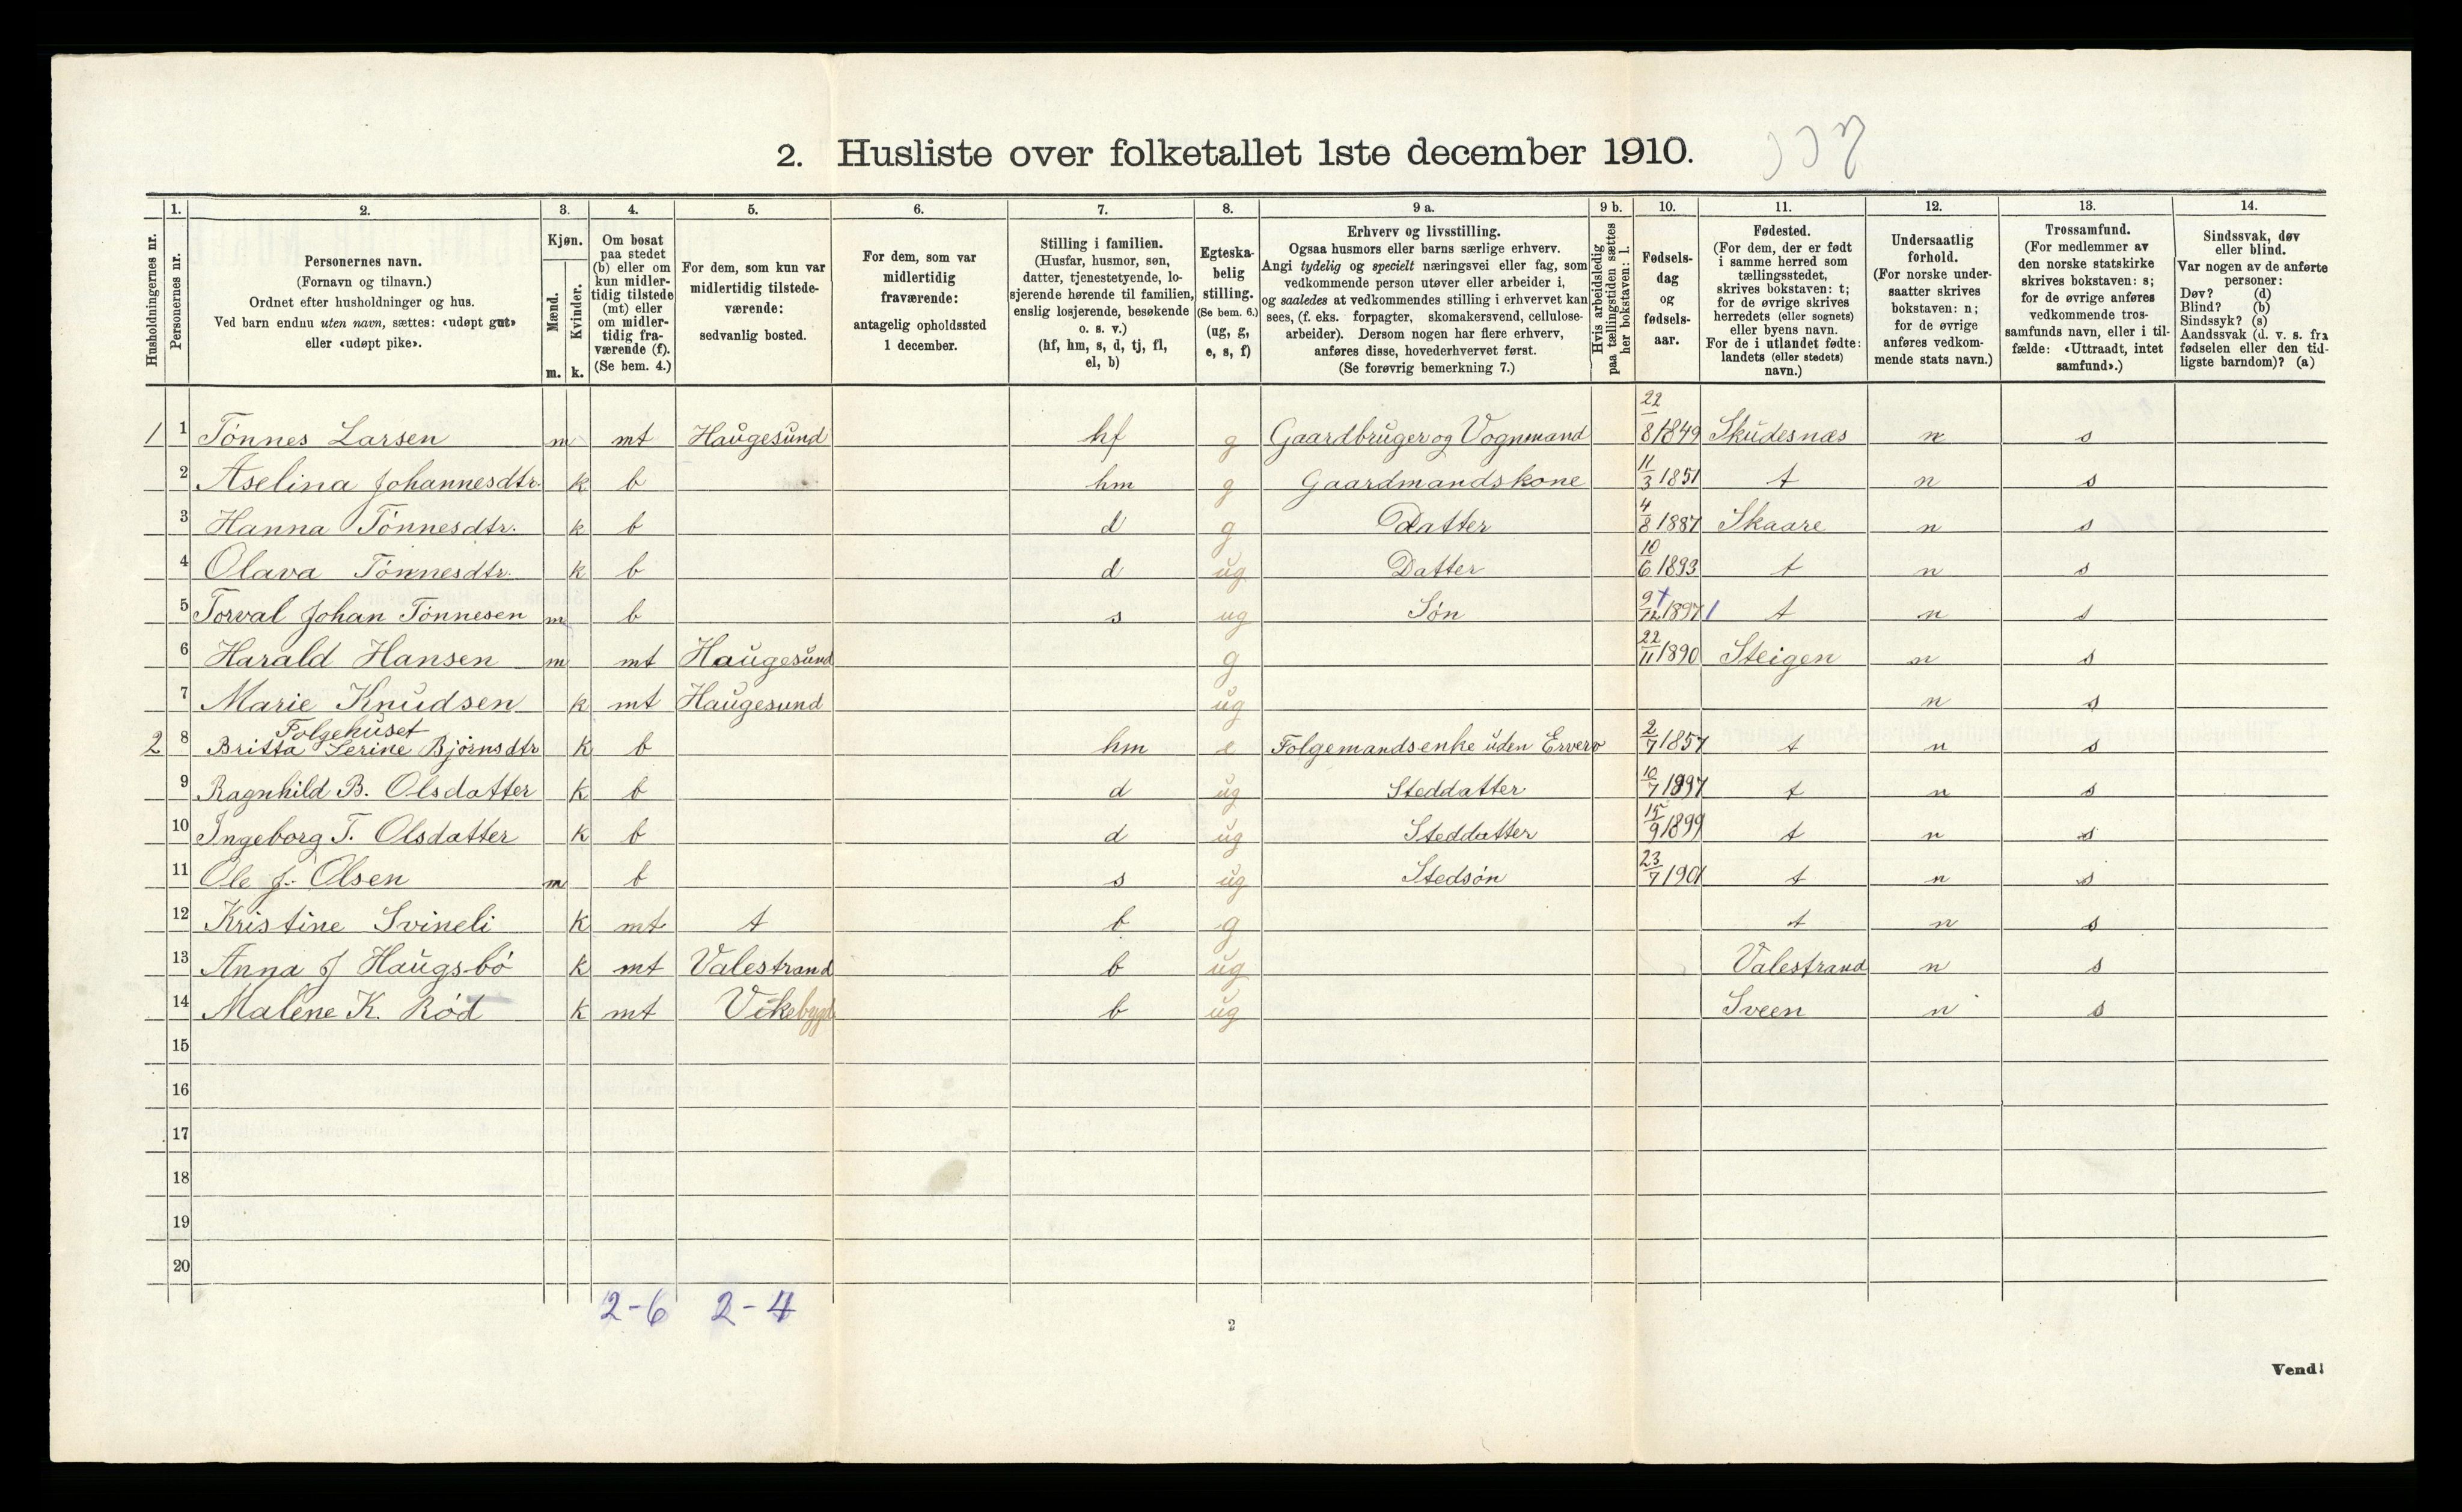 2. Husliste over folketallet 1ste december 1910.
Husholdningernes nr.
1.
Personernes nr.
2.
Personernes navn.
(Fornavn og tilnavn.)
Ordnet efter husholdninger og hus.
Ved barn endnu uten navn, sættes: «udøpt gut»
eller «udøpt pike».
3.
Kjøn.
Mænd.
Kvinder.
m. k.
4.
Om bosat
paa stedet
(b) eller om
kun midler-
tidig tilstede
(mt) eller
om midler-
tidig fra-
værende (f).
(Se bem. 4.)
5.
For dem, som kun var
midlertidig tilstede-
værende:
sedvanlig bosted.
6.
For dem, som var
midlertidig
fraværende:
antagelig opholdssted
1 december.
7.
Stilling i familien.
(Husfar, husmor, søn,
datter, tjenestetyende, lo-
sjerende hørende til familien,
enslig losjerende, besøkende
o. s. v.)
(hf, hm, s, d, tj, fl,
el, b)
8.
Egteska-
belig
stilling.
(Se bem. 6.)
(ug, g,
e, s, f)
9 a.
Erhverv og livsstilling.
Ogsaa husmors eller barns særlige erhverv.
Angi tydelig og specielt næringsvei eller fag, som
vedkommende person utøver eller arbeider i,
og saaledes at vedkommendes stilling i erhvervet kan
sees, (f. eks. forpagter, skomakersvend, cellulose-
arbeider). Dersom nogen har flere erhverv,
anføres disse, hovederhvervet først.
(Se forøvrig bemerkning 7.)
9 b.
Hvis arbeidsledig
paa tællingstiden sættes
her bokstaven: l.
10.
Fødsels-
dag
og
fødsels-
aar.
11.
Fødested.
(For dem, der er født
i samme herred som
tællingsstedet,
skrives bokstaven: t;
for de øvrige skrives
herredets (eller sognets)
eller byens navn.
For de i utlandet fødte:
landets (eller stedets)
navn.)
12.
Undersaatlig
forhold.
(For norske under-
saatter skrives
bokstaven: n;
for de øvrige
anføres vedkom-
mende stats navn.)
13.
Trossamfund.
(For medlemmer av
den norske statskirke
skrives bokstaven: s;
for de øvrige anføres
vedkommende tros-
samfunds navn, eller i til-
fælde: «Uttraadt, intet
samfund».)
14.
Sindssvak, døv
eller blind.
Var nogen av de anførte
personer:
Døv? (d)
Blind? (b)
Sindssyk? (s)
Aandssvak (d. v. s. fra
fødselen eller den tid-
ligste barndom)? (a)
1 1 Tönnes Larsen m mt Haugesund hf g Gaardbruger og Vognmand 22/8 1849 Skudesnæs n s
2 Aselina Johannesdtr. k b hm g Gaardmandskone 11/3 1851 t n s
3 Hanna Tönnesdtr. k b d g Datter 4/8 1887 Skaare n s
4 Olava Tönnesdtr. k b d ug Datter 10/6 1893 t n s
5 Torval Johan Tönnesen m b s ug Søn 9/12 1897 t n s
6 Harald Hansen m mt Haugesund g 22/11 1890 Steigen n s
7 Marie Knudsen k mt Haugesund ug n s
Folgehuset
2 8 Britta Serine Bjørnsdtr k b hm e Folgemandsenke uden Erverv 2/7 1857 t n s
9 Ragnhild B. Olsdatter k b d ug Steddatter 10/7 1897 t n s
10 Ingeborg T. Olsdatter k b d ug Steddatter 15/9 1899 t n s
11 Ole J. Olsen m b s ug Stedsön 23/7 1901 t n s
12 Kristine Svineli k mt t b g t n s
13 Anna J Haugsbö k mt Valestrand b ug Valestrand n s
14 Malene K. Röd k mt Vikebygd b ug Sveen n s
15
16
17
18
19
20
2-6 2-4
2
Vend!